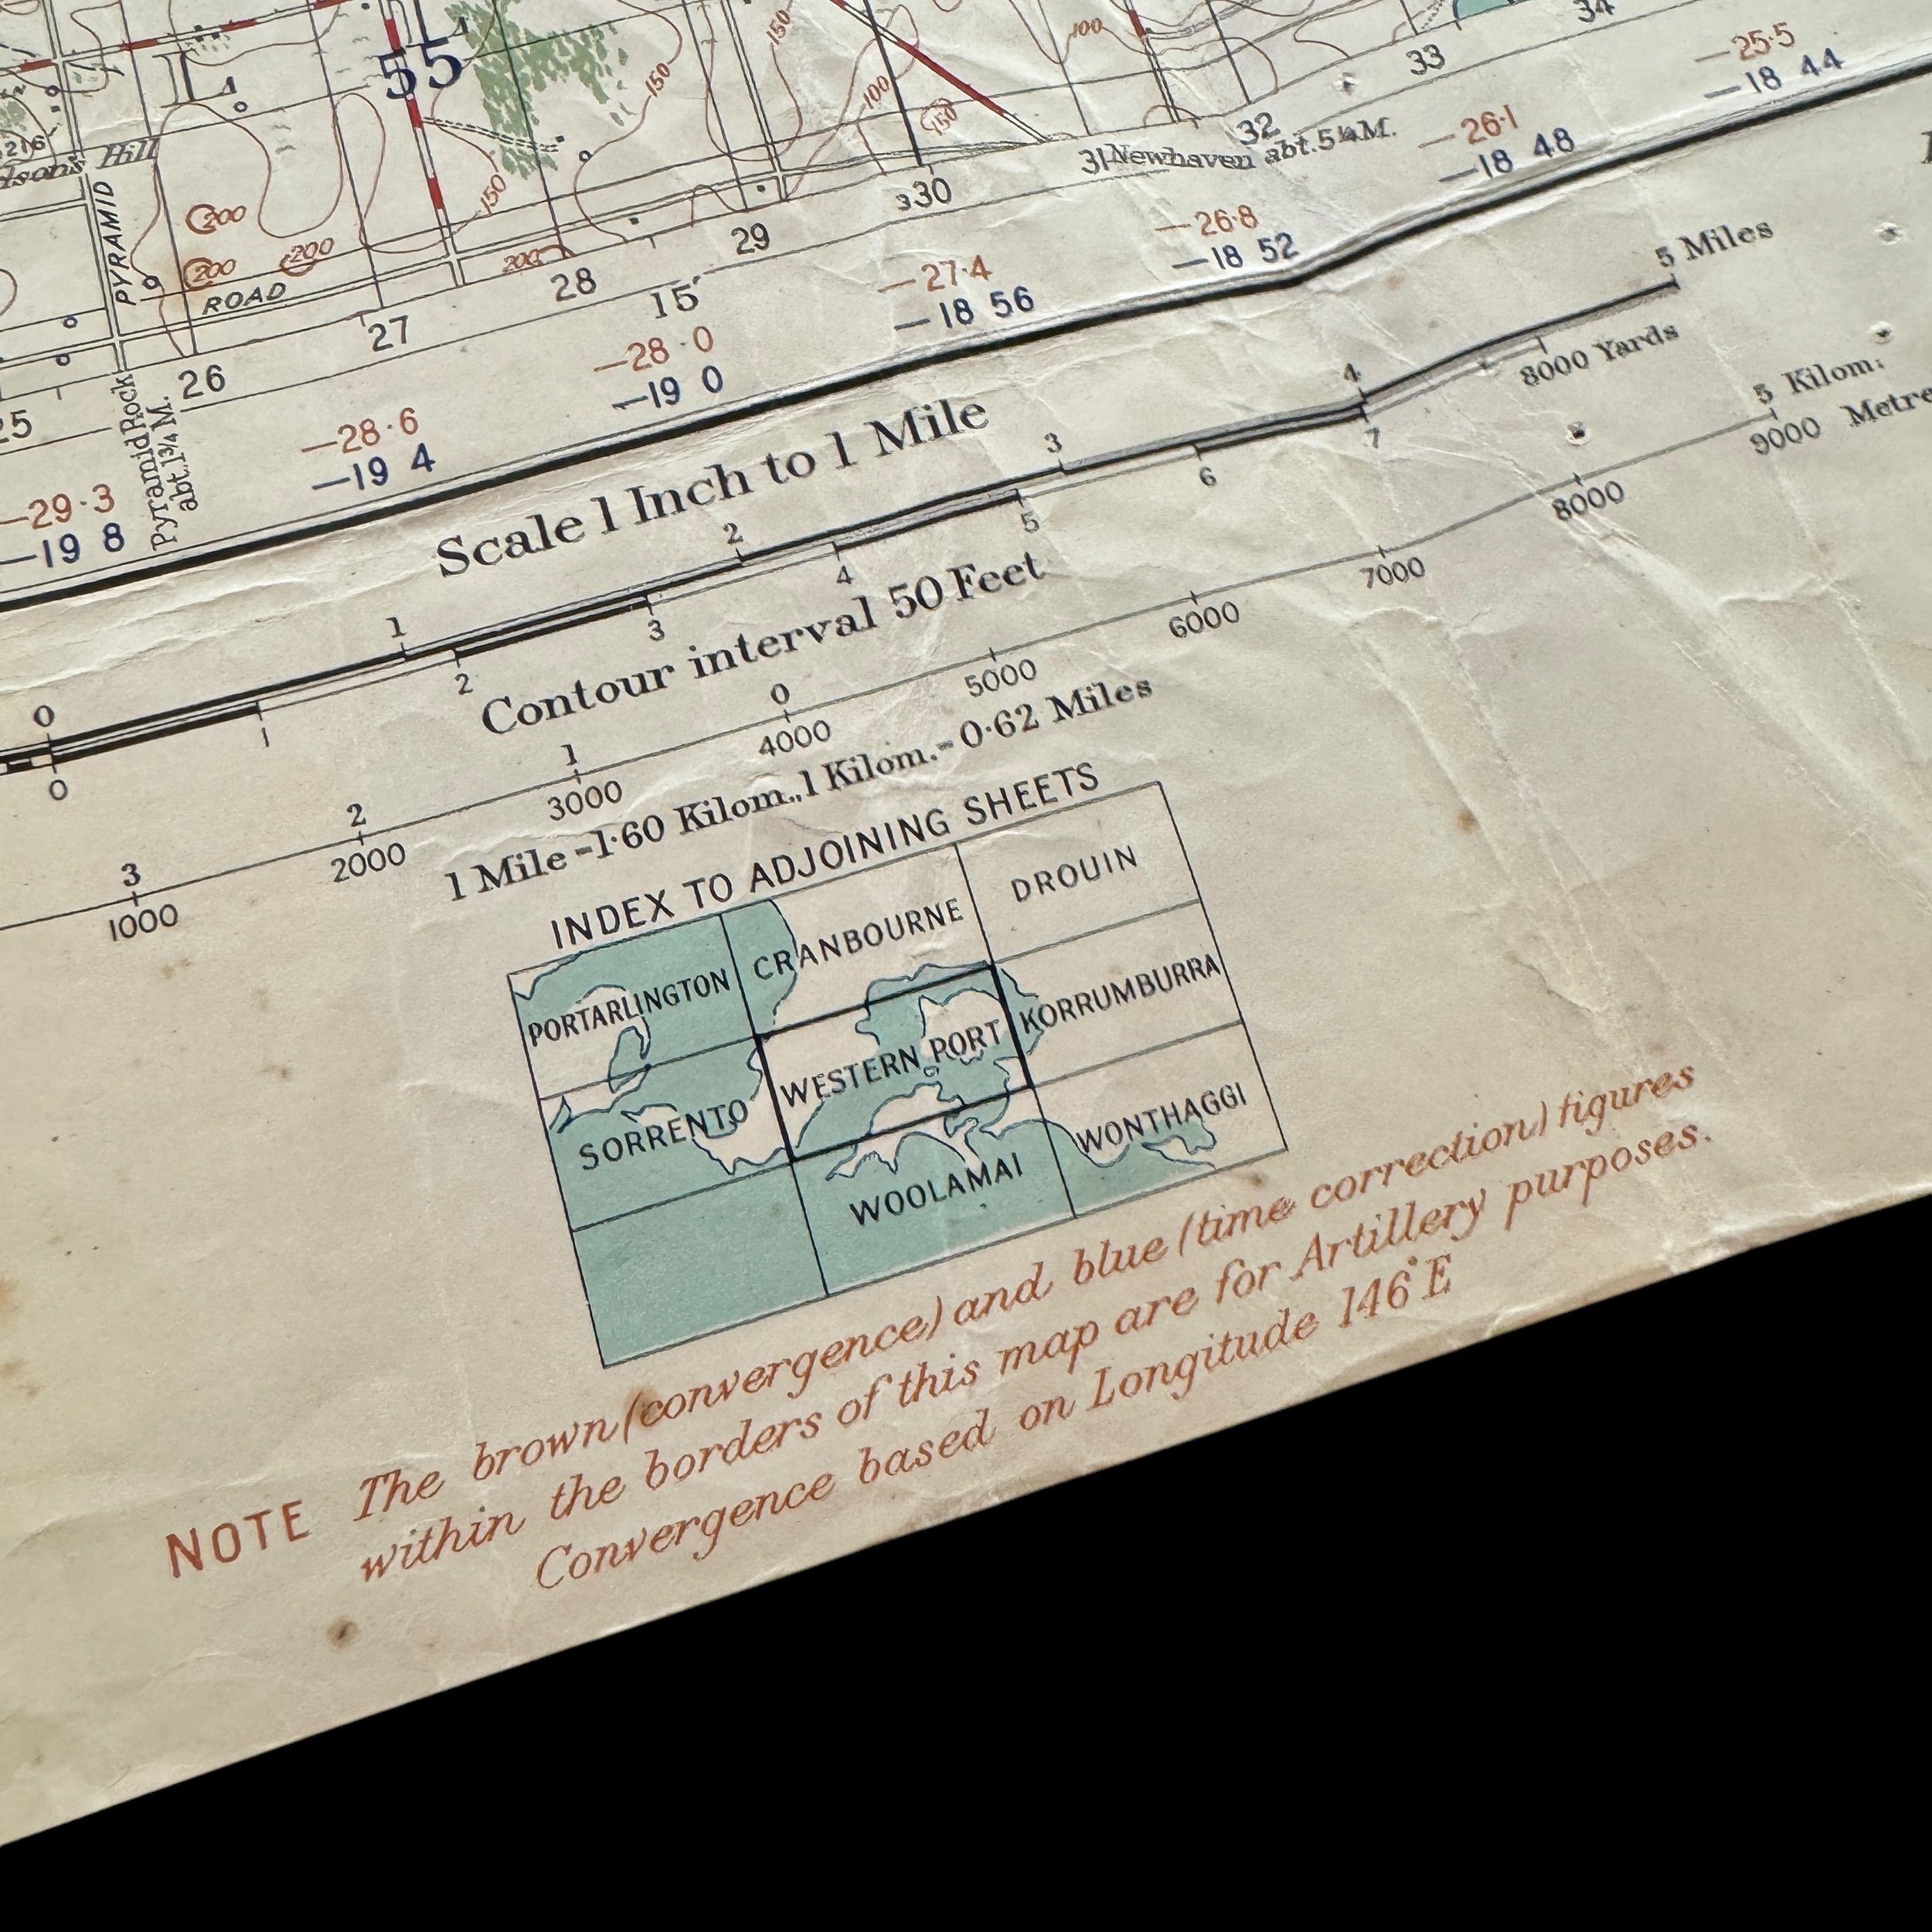 55
L
150
150
100
150
100
34
33
32
-25·5
-18 44
216
Hill
31 Newhaven abt. 5¼ M.
-26·1
-18 48
PYRAMID
200
200
200
150
200
330
29
28
15'
-26·8
-18 52
-27·4
-18 56
ROAD
27
26
-28·0
-19 0
25
Pyramid Rock
abt. 1¾ M.
-28·6
-19 4
-29·3
-19 8
Scale 1 Inch to 1 Mile
0 1 2 3 4 5 Miles
0 1 2 3 4 5 6 7 8000 Yards
Contour interval 50 Feet
3 2 1 0 5 Kilom:
1000 2000 3000 4000 5000 6000 7000 8000 9000 Metre
1 Mile = 1·60 Kilom., 1 Kilom. = 0·62 Miles
INDEX TO ADJOINING SHEETS
PORTARLINGTON CRANBOURNE DROUIN
SORRENTO WESTERN PORT KORRUMBURRA
WOOLAMAI WONTHAGGI
NOTE The brown (convergence) and blue (time correction) figures
within the borders of this map are for Artillery purposes.
Convergence based on Longitude 146° E